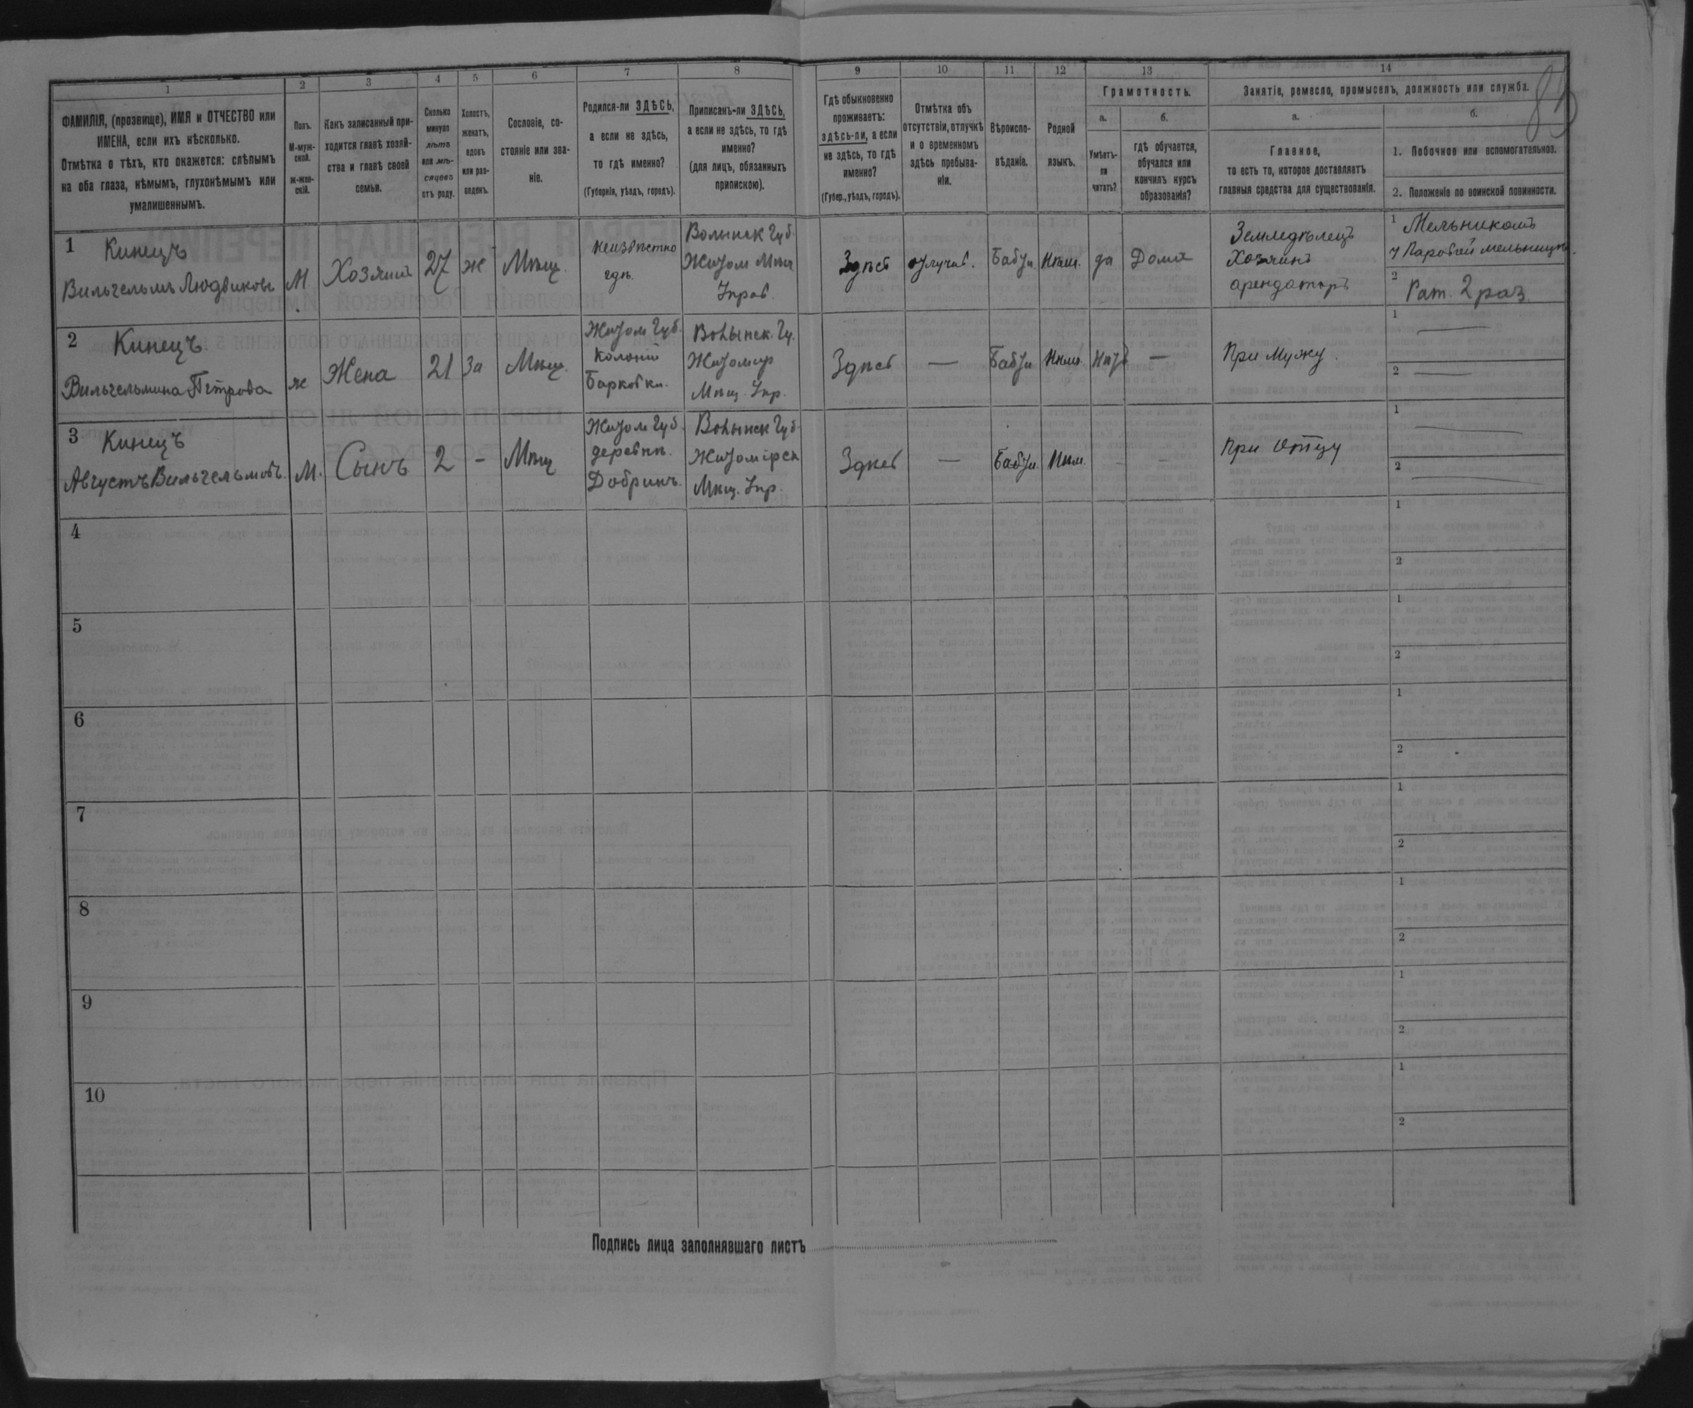 1 2 3 4 5 6 7 8 9 10 11 12 13 14
ФАМИЛІЯ, (прозвище), ИМЯ и ОТЧЕСТВО или
ИМЕНА, если ихъ нѣсколько.
Отмѣтка о тѣхъ, кто окажется: слѣпымъ
на оба глаза, нѣмымъ, глухонѣмымъ или
умалишеннымъ.
Полъ.
М-муж-
ской.
ж-жен-
скій.
Какъ записанный при-
ходится главѣ хозяй-
ства и главѣ своей
семьи.
Сколько
минуло
лѣтъ
или мѣ-
сяцевъ
отъ роду.
Холостъ,
женатъ,
вдовъ
или раз-
веденъ.
Сословіе, со-
стояніе или зва-
ніе.
Родился-ли ЗДѢСЬ,
а если не здѣсь,
то гдѣ именно?
(Губернія, уѣздъ, городъ).
Приписанъ-ли ЗДѢСЬ,
а если не здѣсь, то гдѣ
именно?
(для лицъ, обязанныхъ
припискою).
Гдѣ обыкновенно
проживаетъ:
здѣсь-ли, а если
не здѣсь, то гдѣ
именно?
(Губер., уѣздъ, городъ).
Отмѣтка объ
отсутствіи, отлучкѣ
и о временномъ
здѣсь пребыва-
ніи.
Вѣроиспо-
вѣданіе.
Родной
языкъ.
Грамотность.
а.
Умѣетъ-
ли
читать?
б.
гдѣ обучается,
обучался или
кончилъ курсъ
образованія?
Занятіе, ремесло, промыселъ, должность или служба.
а.
Главное,
то есть то, которое доставляетъ
главныя средства для существованія.
б.
1. Побочное или вспомогательное.
2. Положеніе по воинской повинности.
1
Кинецъ
Вильгельмъ Людвиковъ
М
Хозяинъ
27
ж
Мѣщ.
неизвѣстно
гдѣ.
Волынск Губ.
Житом Мѣщ
Управ.
Здѣсь
Нѣм.
да
Дома
Земледѣлецъ
Хозяинъ
арендаторъ
1 Мельникомъ
у Паровой мельницѣ
2 Рат. 2 раз.
2
Кинецъ
Вильгельмина Петрова
ж
Жена
21
За
Мѣщ.
Житом Губ.
Колоніи
Волынск. Гу.
Житомир
Мѣщ. Упр.
Здѣсь
—
Нѣм.
—
При Мужу
1 —
2 —
3
Кинецъ
Августъ Вильгельмовъ
М.
Сынъ
2
-
Мѣщ
Житом Губ.
деревни.
Добринъ.
Волынск Губ
Житомірск
Мѣщ. Упр.
Здѣсь
—
Нѣм
-
-
При Отцу
1 —
2 —
4
1
2
5
1
2
6
1
2
7
1
2
8
1
2
9
1
2
10
1
2
Подпись лица заполнявшаго листъ